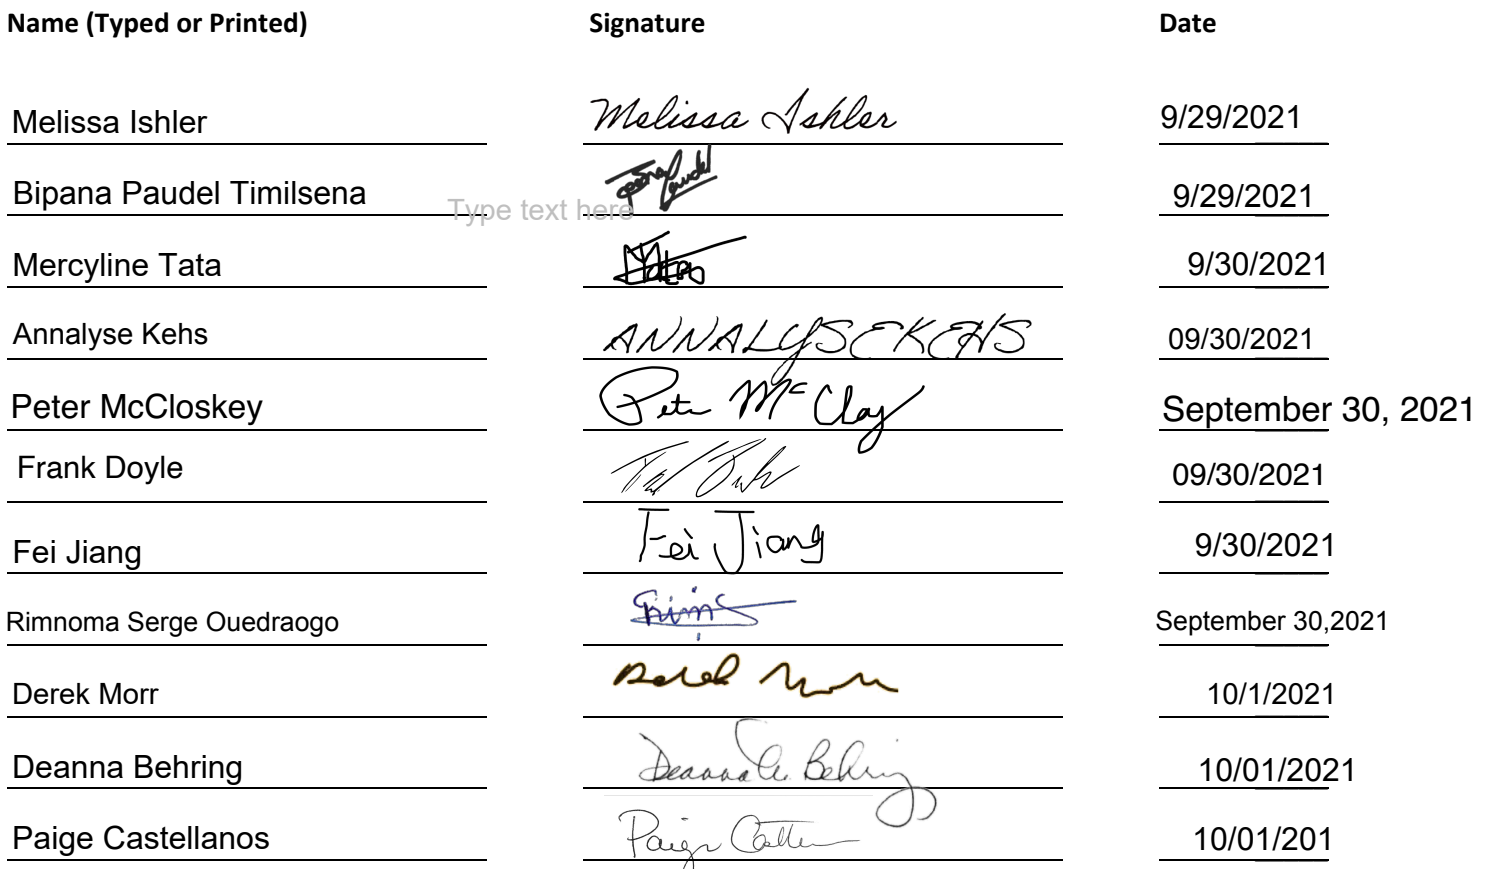 Name (Typed or Printed) Signature Date
Melissa Ishler Melissa Ishler 9/29/2021
Bipana Paudel Timilsena Paudel 9/29/2021
Type text here
Mercyline Tata 9/30/2021
Annalyse Kehs ANNALYSE KEHS 09/30/2021
Peter McCloskey Pete McCloy September 30, 2021
Frank Doyle 09/30/2021
Fei Jiang Fei Jiang 9/30/2021
Rimnoma Serge Ouedraogo September 30,2021
Derek Morr Derek Morr 10/1/2021
Deanna Behring Deanna Behring 10/01/2021
Paige Castellanos Paige 10/01/201